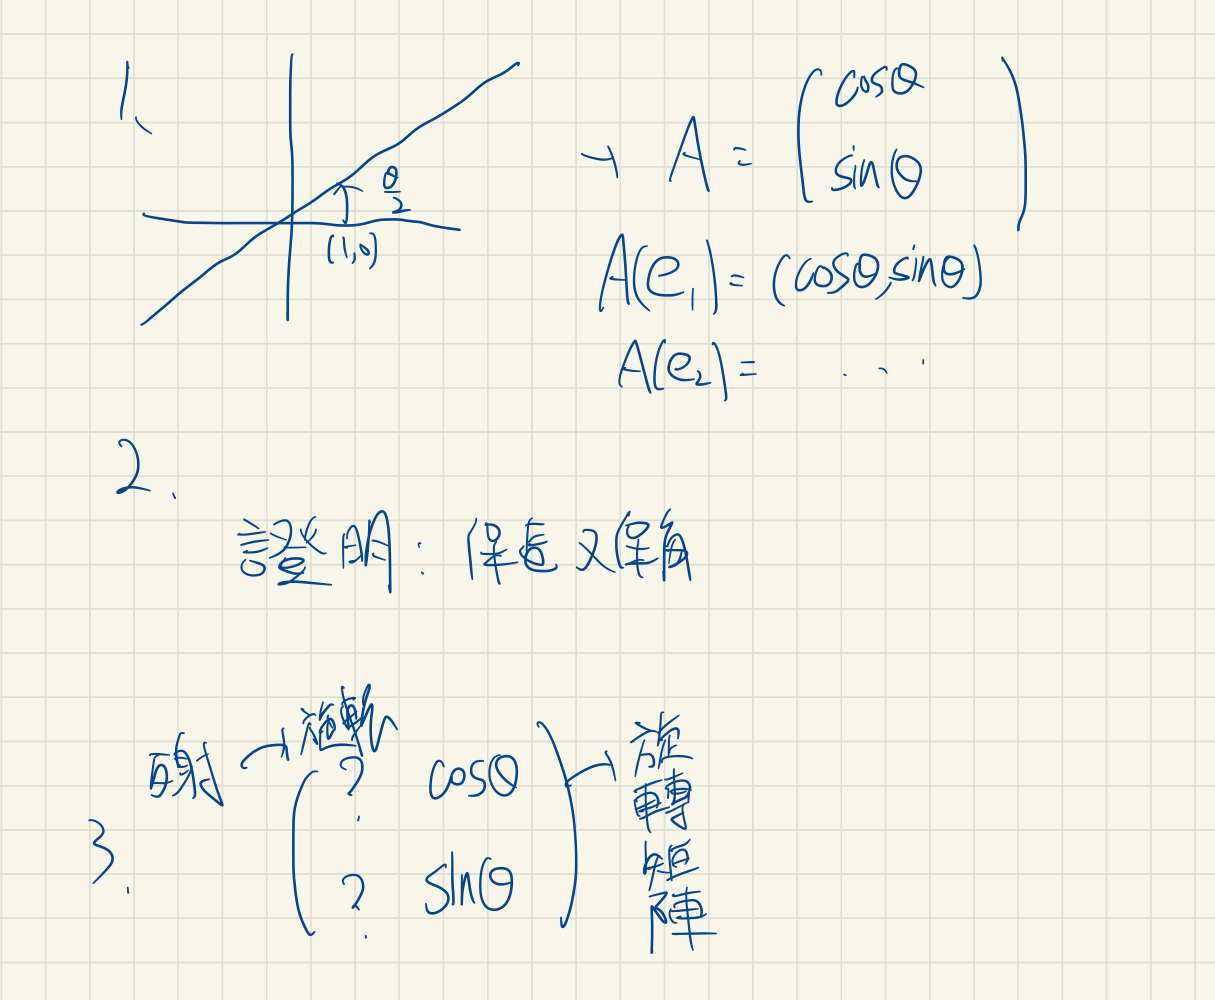 1、
θ/2
(1,0)
→ A = ( cosθ
sinθ )
A(e₁) = (cosθ, sinθ)
A(e₂) = ...
2.
證明: 保長又保角
3.
→ 旋軌
( ? cosθ
? sinθ ) → 旋轉矩陣